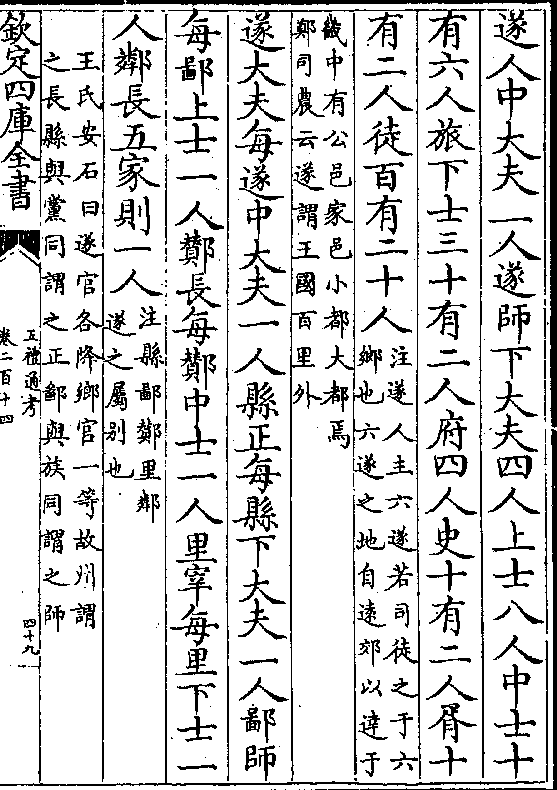 遂人中大夫一人遂師下大夫四人上士八人中士十
有六人旅下士三十有二人府四人史十有二人胥十
有二人徒百有二十人注遂人主六遂若司徒之于六
鄉也六遂之地自遠郊以達于
畿中有公邑家邑小都大都焉
鄭司農云遂謂王國百里外
遂大夫每遂中大夫一人縣正每縣下大夫一人鄙師
每鄙上士一人酇長每酇中士一人里宰每里下士一
人鄰長五家則一人注縣鄙酇里鄰
遂之屬别也
王氏安石曰遂官各降鄉官一等故州謂
之長縣與黨同謂之正鄙與族同謂之師
欽定四庫全書
五禮通考
卷二百十四
四十九